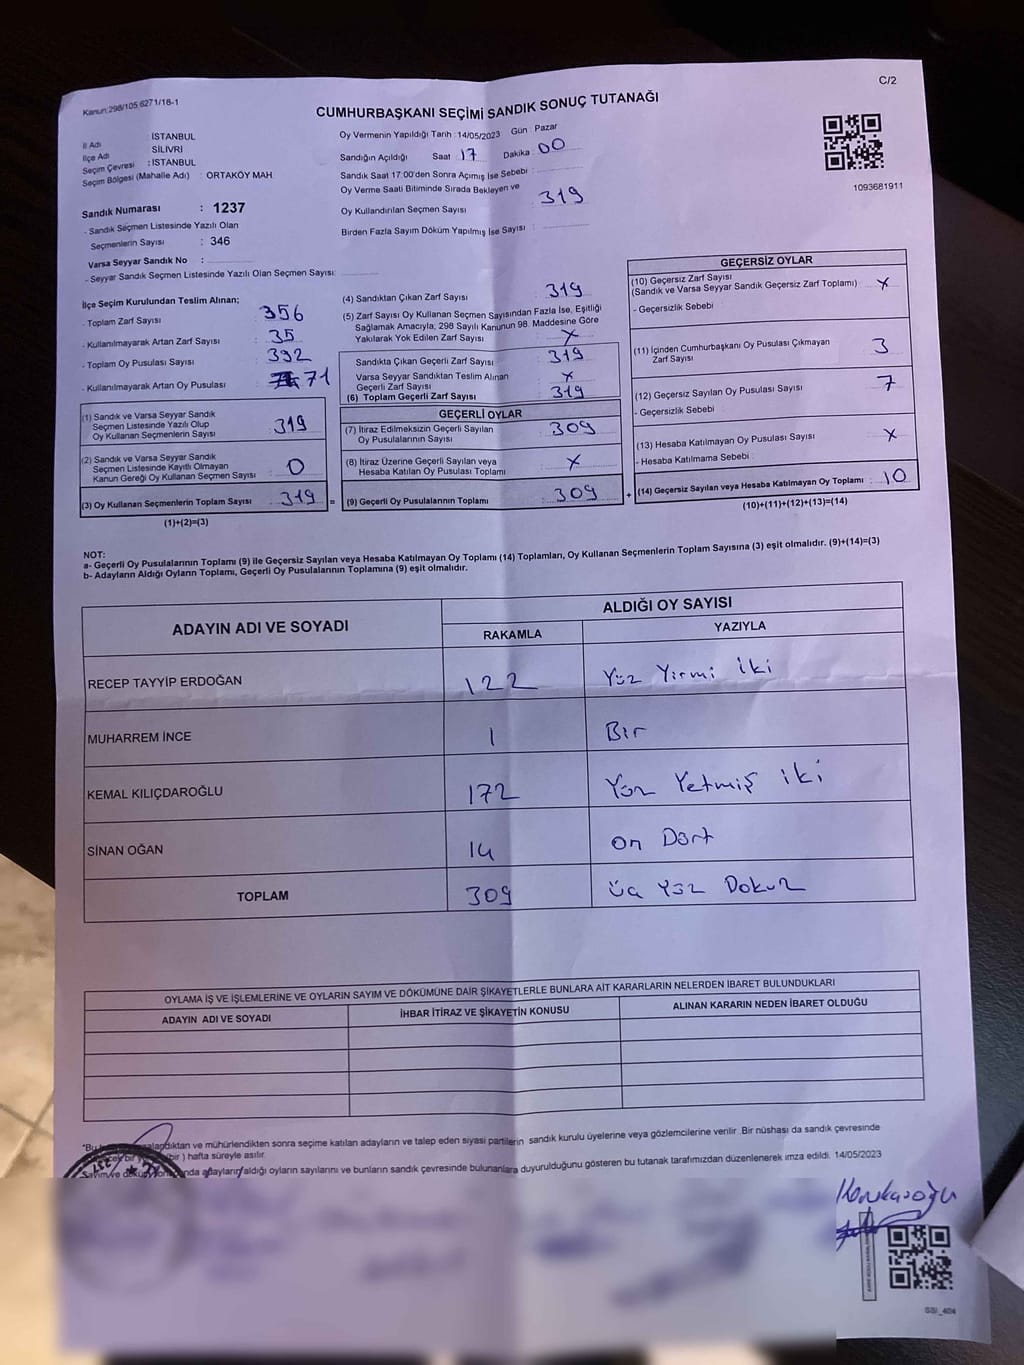 C/2
Kanun:298/105;6271/18-1
CUMHURBAŞKANI SEÇİMİ SANDIK SONUÇ TUTANAĞI
İl Adı : İSTANBUL
İlçe Adı SİLİVRİ
Seçim Çevresi : İSTANBUL
Seçim Bölgesi (Mahalle Adı) : ORTAKÖY MAH
Sandık Numarası : 1237
- Sandık Seçmen Listesinde Yazılı Olan
Seçmenlerin Sayısı : 346
Varsa Seyyar Sandık No :
- Seyyar Sandık Seçmen Listesinde Yazılı Olan Seçmen Sayısı:
Oy Vermenin Yapıldığı Tarih :14/05/2023 Gün : Pazar
Sandığın Açıldığı Saat : 17 Dakika : 00
Sandık Saat 17:00'den Sonra Açımış İse Sebebi :
Oy Verme Saati Bitiminde Sırada Bekleyen ve
Oy Kullandırılan Seçmen Sayısı : 319
Birden Fazla Sayım Döküm Yapılmış İse Sayısı :
1093681911
İlçe Seçim Kurulundan Teslim Alınan;
- Toplam Zarf Sayısı : 356
- Kullanılmayarak Artan Zarf Sayısı : 35
- Toplam Oy Pusulası Sayısı : 392
- Kullanılmayarak Artan Oy Pusulası : 71
(1) Sandık ve Varsa Seyyar Sandık
Seçmen Listesinde Yazılı Olup
Oy Kullanan Seçmenlerin Sayısı : 319
(2) Sandık ve Varsa Seyyar Sandık
Seçmen Listesinde Kayıtlı Olmayan
Kanun Gereği Oy Kullanan Seçmen Sayısı : 0
(3) Oy Kullanan Seçmenlerin Toplam Sayısı : 319 =
(1)+(2)=(3)
(4) Sandıktan Çıkan Zarf Sayısı : 319
(5) Zarf Sayısı Oy Kullanan Seçmen Sayısından Fazla İse, Eşitliği
Sağlamak Amacıyla; 298 Sayılı Kanunun 98. Maddesine Göre
Yakılarak Yok Edilen Zarf Sayısı : X
Sandıkta Çıkan Geçerli Zarf Sayısı : 319
Varsa Seyyar Sandıktan Teslim Alınan
Geçerli Zarf Sayısı : X
(6) Toplam Geçerli Zarf Sayısı : 319
GEÇERLİ OYLAR
(7) İtiraz Edilmeksizin Geçerli Sayılan
Oy Pusulalarının Sayısı : 309
(8) İtiraz Üzerine Geçerli Sayılan veya
Hesaba Katılan Oy Pusulası Toplamı : X
(9) Geçerli Oy Pusulalarının Toplamı : 309 +
GEÇERSİZ OYLAR
(10) Geçersiz Zarf Sayısı
(Sandık ve Varsa Seyyar Sandık Geçersiz Zarf Toplamı) : X
- Geçersizlik Sebebi :
(11) İçinden Cumhurbaşkanı Oy Pusulası Çıkmayan
Zarf Sayısı : 3
(12) Geçersiz Sayılan Oy Pusulası Sayısı : 7
- Geçersizlik Sebebi
(13) Hesaba Katılmayan Oy Pusulası Sayısı : X
- Hesaba Katılmama Sebebi :
(14) Geçersiz Sayılan veya Hesaba Katılmayan Oy Toplamı : 10
(10)+(11)+(12)+(13)=(14)
NOT:
a- Geçerli Oy Pusulalarının Toplamı (9) ile Geçersiz Sayılan veya Hesaba Katılmayan Oy Toplamı (14) Toplamları, Oy Kullanan Seçmenlerin Toplam Sayısına (3) eşit olmalıdır. (9)+(14)=(3)
b- Adayların Aldığı Oyların Toplamı, Geçerli Oy Pusulalarının Toplamına (9) eşit olmalıdır.
ADAYIN ADI VE SOYADI ALDIĞI OY SAYISI
RAKAMLA YAZIYLA
RECEP TAYYİP ERDOĞAN 122 Yüz Yirmi İki
MUHARREM İNCE 1 Bir
KEMAL KILIÇDAROĞLU 172 Yüz Yetmiş iki
SİNAN OĞAN 14 On Dört
TOPLAM 309 Üç Yüz Dokuz
OYLAMA İŞ VE İŞLEMLERİNE VE OYLARIN SAYIM VE DÖKÜMÜNE DAİR ŞİKAYETLERLE BUNLARA AİT KARARLARIN NELERDEN İBARET BULUNDUKLARI
ADAYIN ADI VE SOYADI İHBAR İTİRAZ VE ŞİKAYETİN KONUSU ALINAN KARARIN NEDEN İBARET OLDUĞU
*Bu mühürlendikten sonra seçime katılan adayların ve talep eden siyasi partilerin sandık kurulu üyelerine veya gözlemcilerine verilir. Bir nüshası da sandık çevresinde
bir ) hafta süreyle asılır.
Sayım ve adayların aldığı oyların sayılarını ve bunların sandık çevresinde bulunanlara duyurulduğunu gösteren bu tutanak tarafımızdan düzenlenerek imza edildi. 14/05/2023
SSI_404